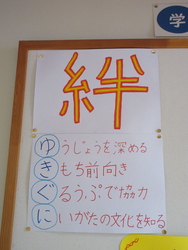 学
絆
ゆうじょうを深める
きもち前向き
ぐるぅぷで協力
にいがたの文化を知る